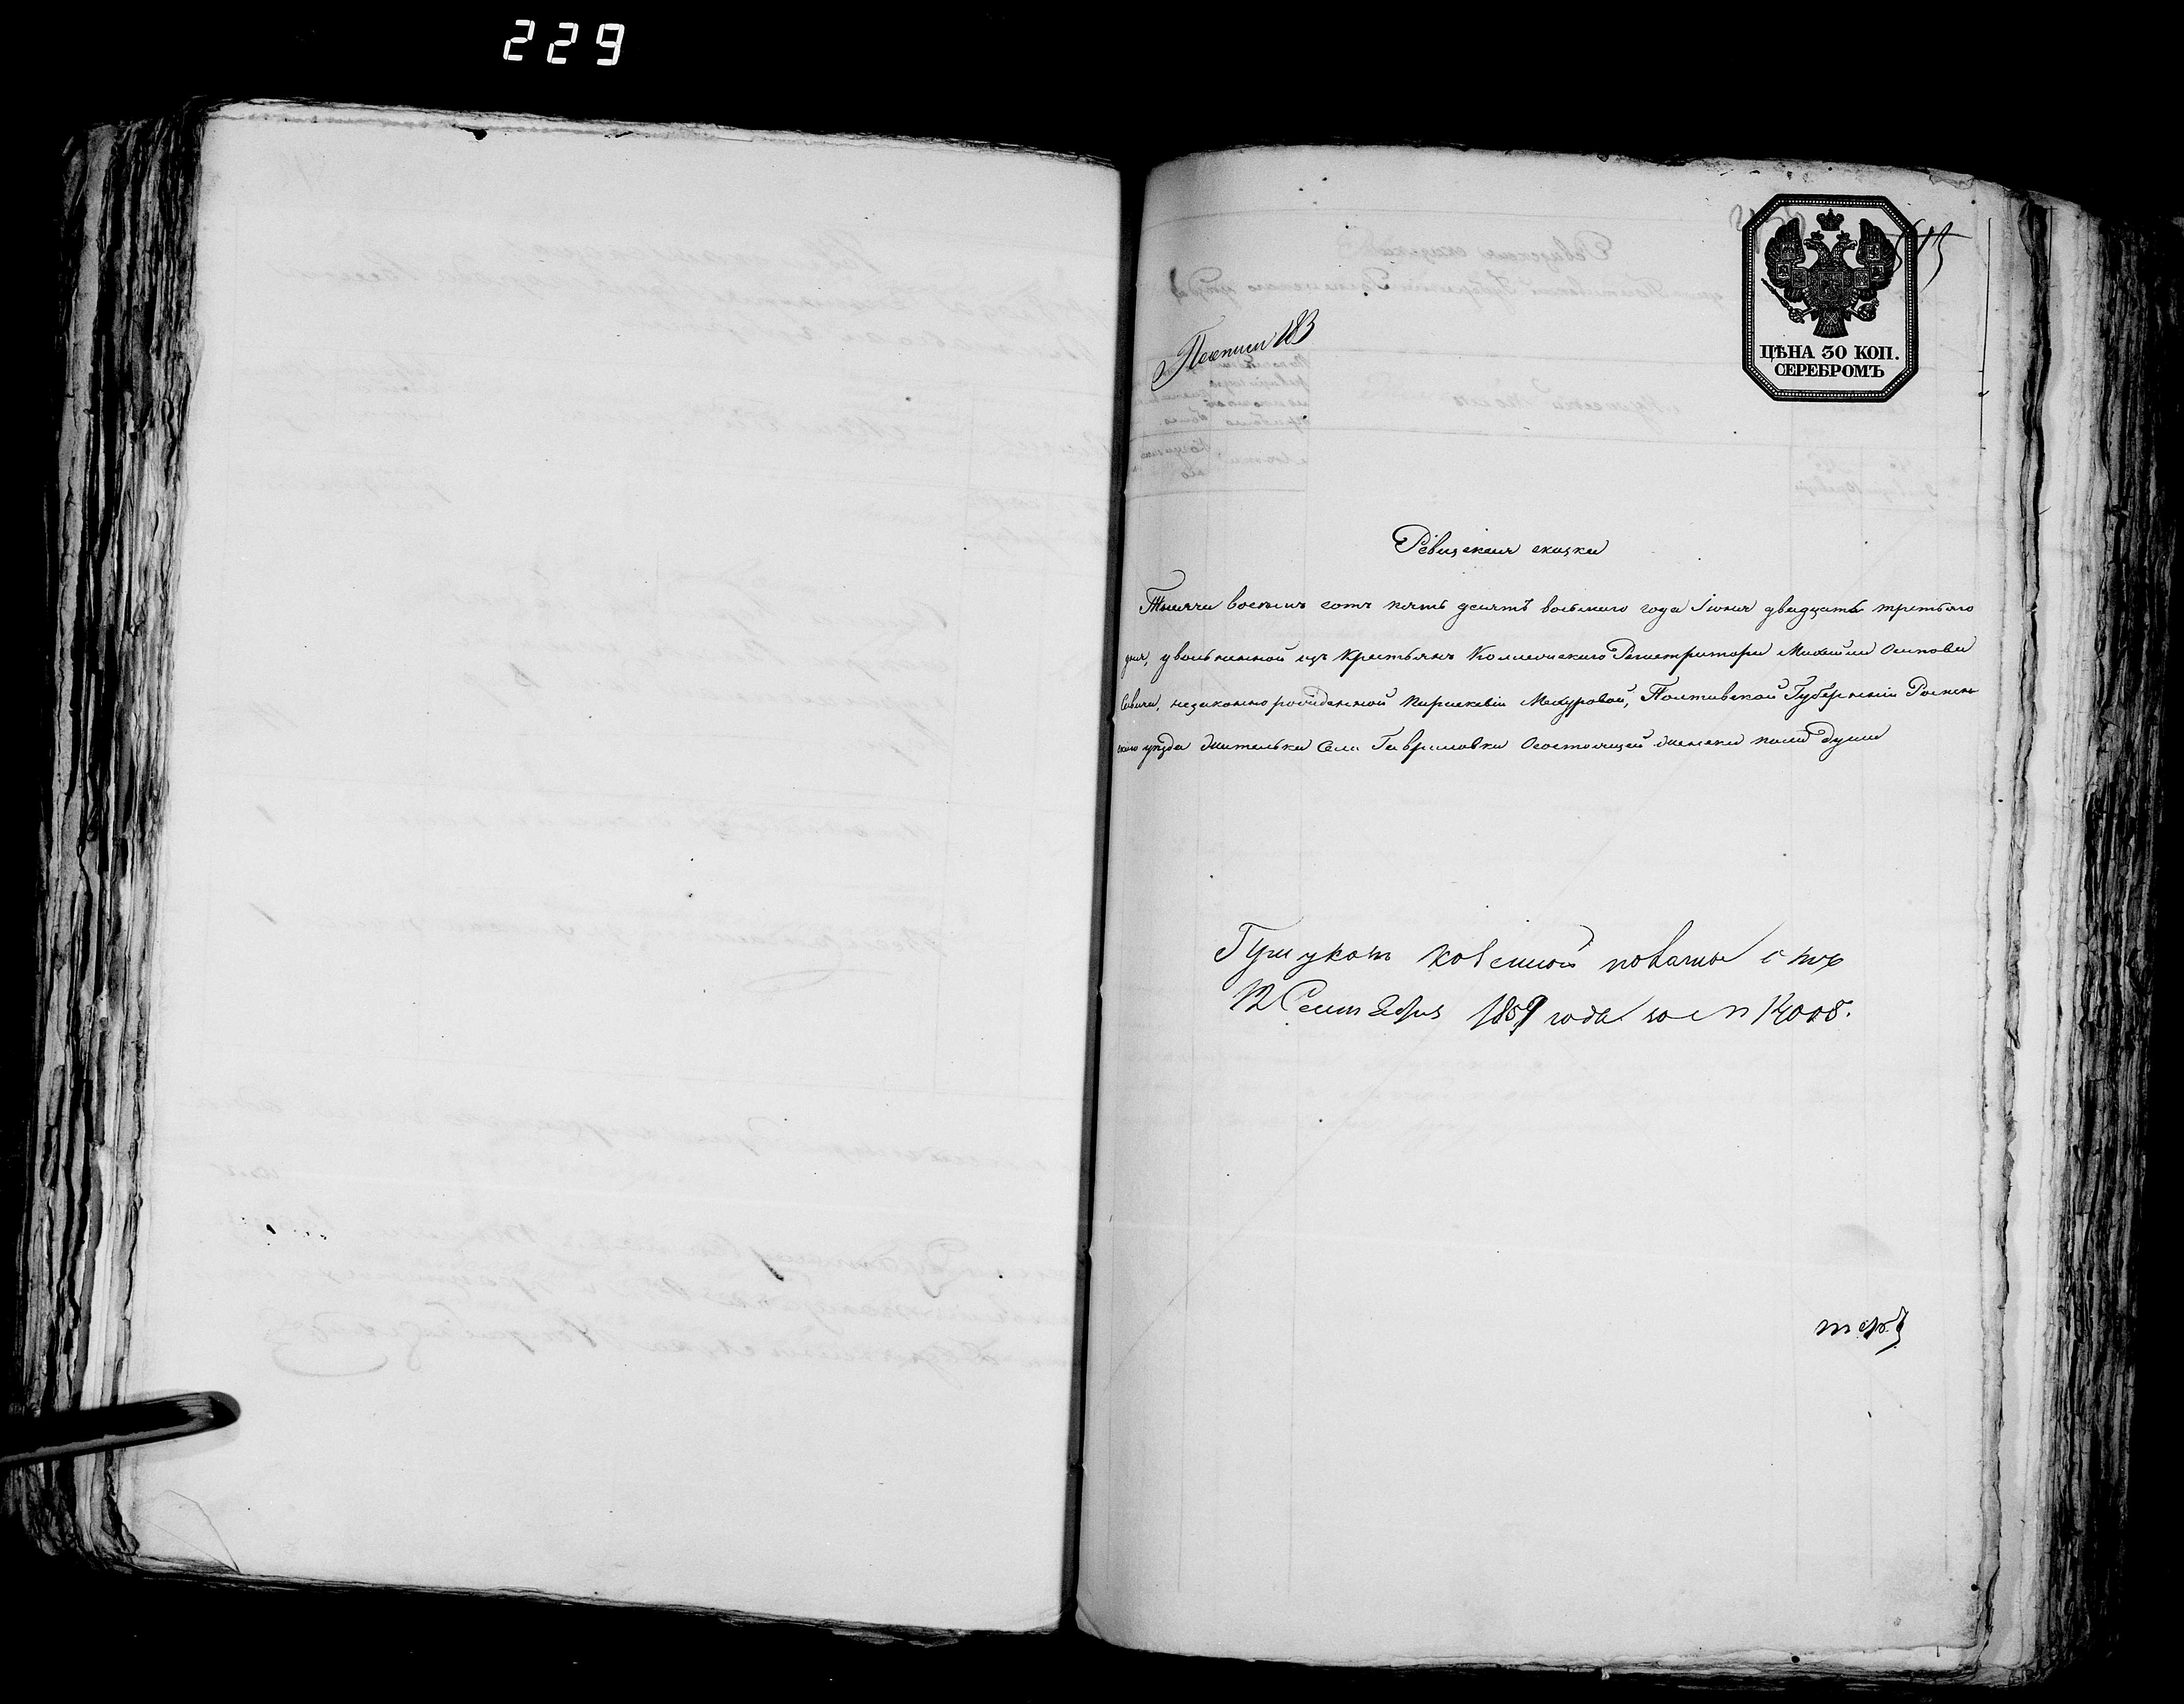 229
515
ЦѢНА 30 КОП.
СЕРЕБРОМЪ
Пописи 183
Ревизская сказка
Тысяча восемь сотъ пять десятъ восьмаго года Іюня двадцать третьяго
дня, уволенной изъ крестьянъ Коллежскаго Регистратора Михаила Осипова
Савича, незаконно рожденной Параскевіи Мазуровой, Полтавской Губерніи Ромен
скаго уѣзда жительки Села Гавриловки О состоящей женска пола души
При указѣ казенной палаты отъ
12 Сентября 1859 года за № 14008.